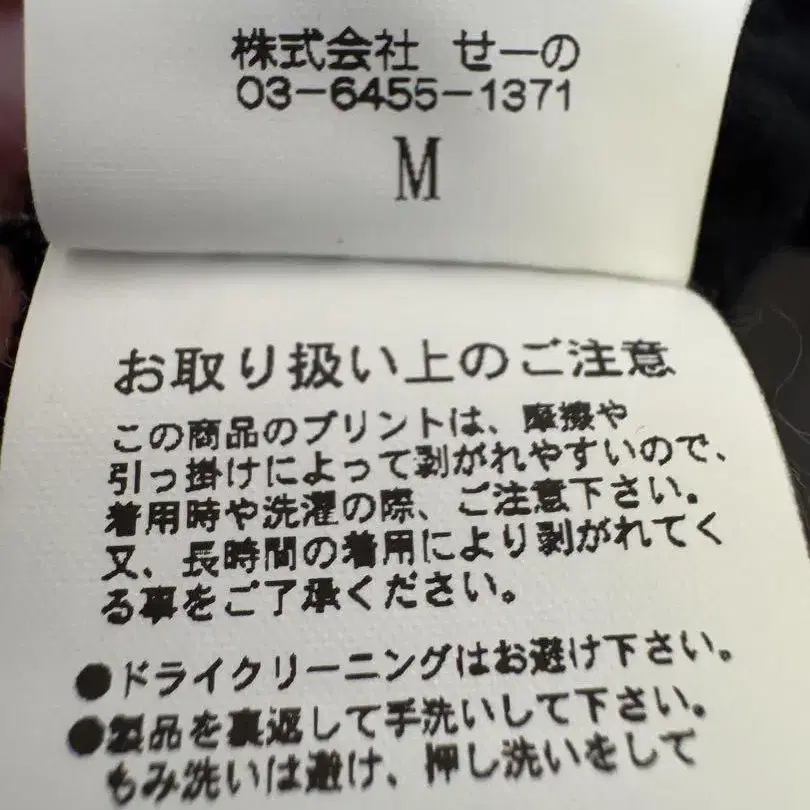 株式会社 せーの
03-6455-1371
M
お取り扱い上のご注意
この商品のプリントは、摩擦や
引っ掛けによって剥がれやすいので、
着用時や洗濯の際、ご注意下さい。
又、長時間の着用により剥がれてく
る事をご了承ください。
●ドライクリーニングはお避け下さい。
●製品を裏返して手洗いして下さい。
もみ洗いは避け、押し洗いをして